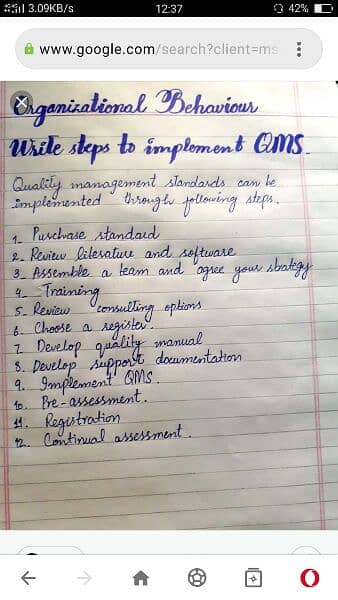 3.09KB/s 12:37 42%
www.google.com/search?client=ms
Organizational Behaviour
Write steps to implement QMS.
Quality management standards can be
implemented through following steps.
1. Purchase standard
2. Review literature and software
3. Assemble a team and agree your strategy
4. Training
5. Review consulting options
6. Choose a register.
7. Develop quality manual
8. Develop support documentation
9. Implement QMS.
10. Pre-assessment.
11. Registration
12. Continual assessment.